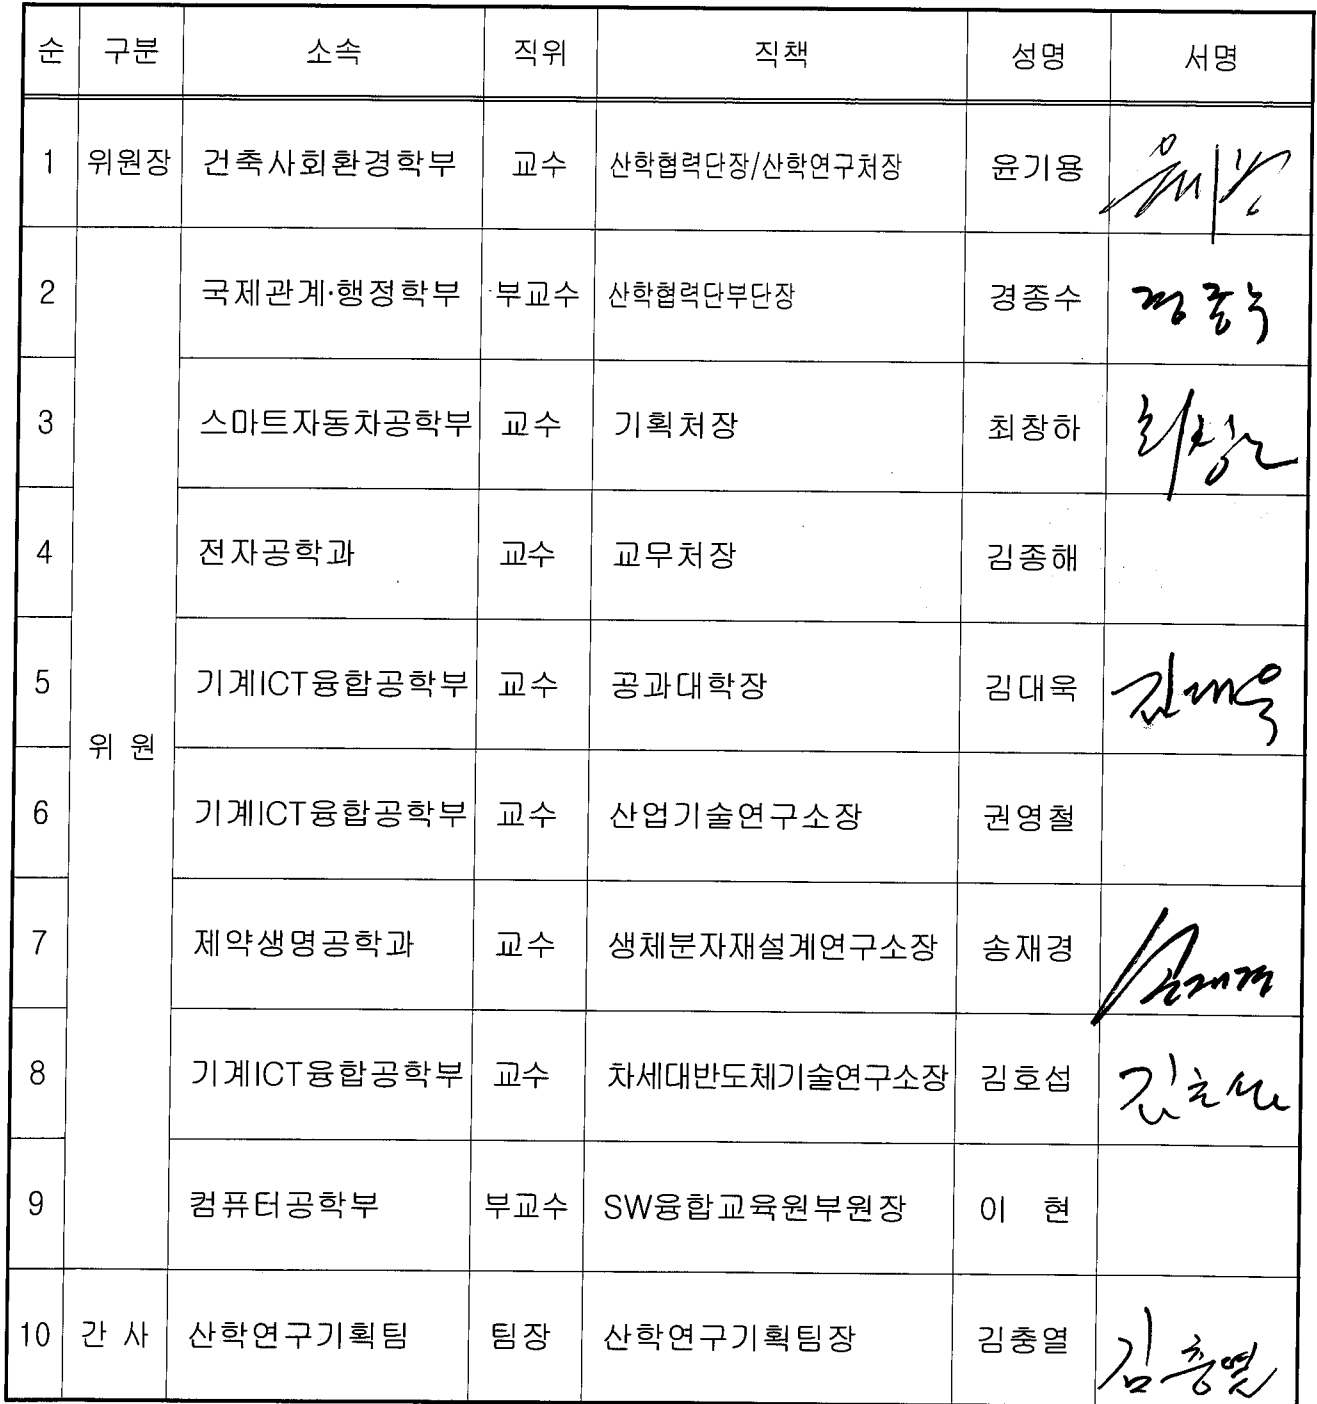 순 구분 소속 직위 직책 성명 서명
1 위원장 건축사회환경학부 교수 산학협력단장/산학연구처장 윤기용 윤기용
2 국제관계·행정학부 부교수 산학협력단부단장 경종수 경종수
3 스마트자동차공학부 교수 기획처장 최창하 최창하
4 전자공학과 교수 교무처장 김종해
5 기계ICT융합공학부 교수 공과대학장 김대욱 김대욱
위 원
6 기계ICT융합공학부 교수 산업기술연구소장 권영철
7 제약생명공학과 교수 생체분자재설계연구소장 송재경 송재경
8 기계ICT융합공학부 교수 차세대반도체기술연구소장 김호섭 김호섭
9 컴퓨터공학부 부교수 SW융합교육원부원장 이 현
10 간 사 산학연구기획팀 팀장 산학연구기획팀장 김충열 김충열